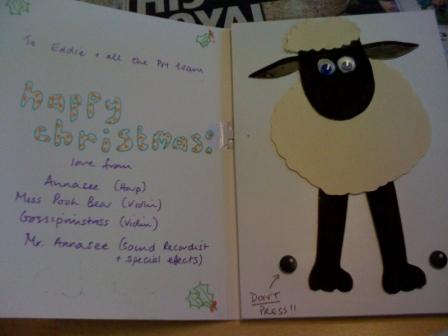 To Eddie + all the PM team
happy
christmas!
love from
Annasee (Harp)
Miss Pooh Bear (Violin)
Gossipmistress (Violin)
Mr. Annasee (Sound Recordist
+ special effects)
DON'T
PRESS!!